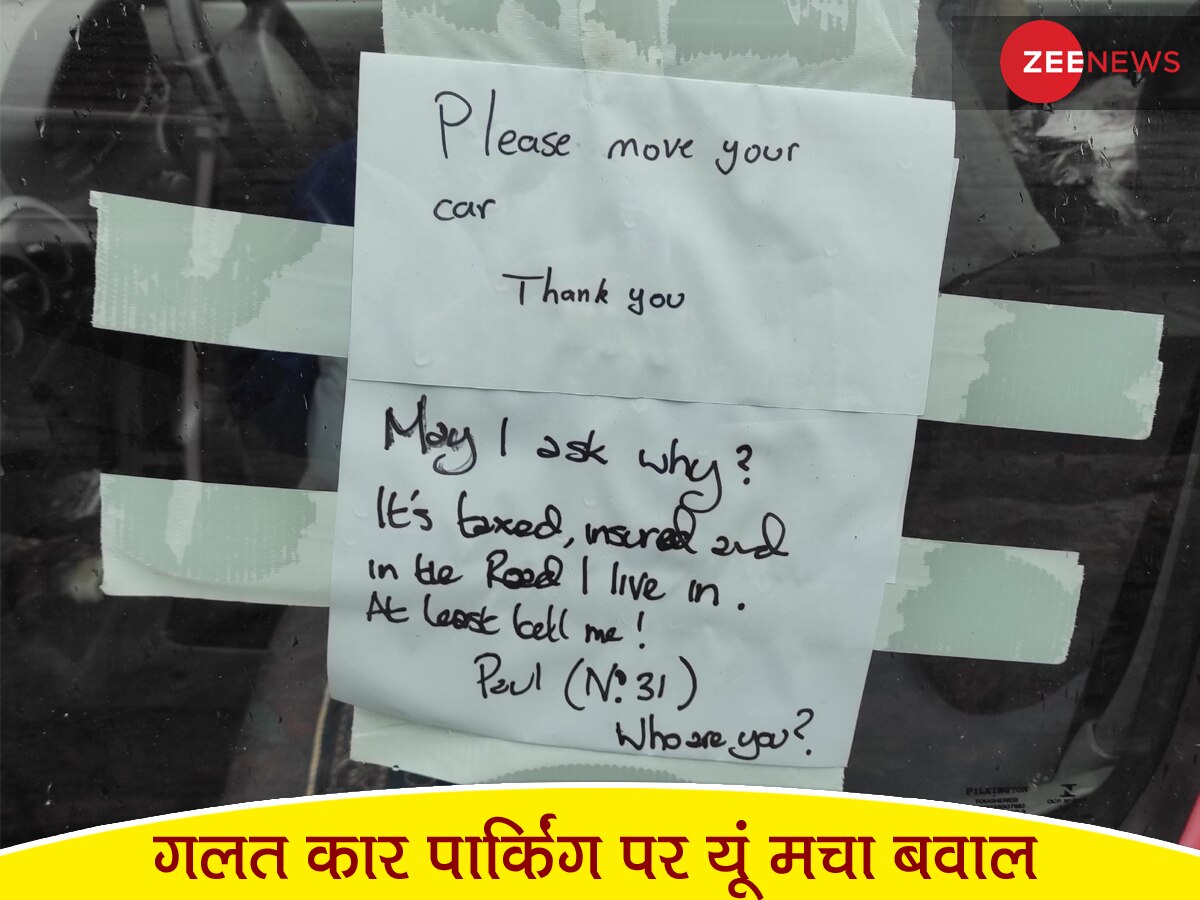 ZEENEWS
Please move your
car
Thank you
May I ask why?
It's taxed, insured and
in the Road I live in.
At least tell me!
Paul (No. 31)
Who are you?
PILKINGTON
TOUGHENED
गलत कार पार्किंग पर यूं मचा बवाल